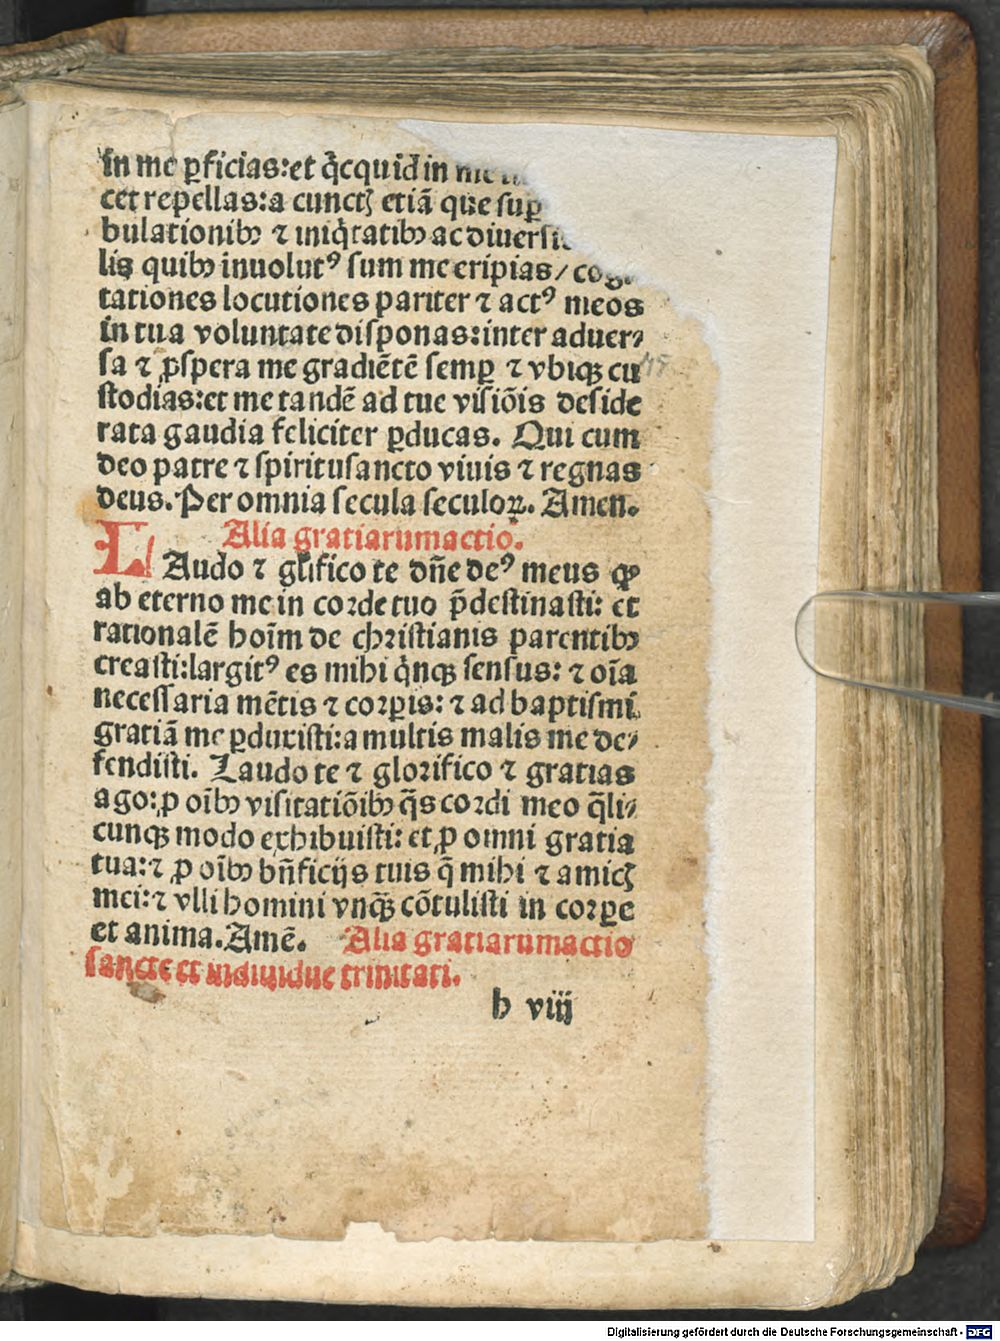 in me ꝑficias:et q̇cquid in me
cet repellas:a cunctꝭ etiā que suꝑ
bulationibꝰ ⁊ iniq̇tatibꝰ ac diuersi
lis quibꝰ inuolutꝰ sum me eripias/ cogi
tationes locutiones pariter ⁊ actꝰ meos
in tua voluntate disponas:inter aduer⸗
sa ⁊ ꝓspera me gradiētē semꝑ ⁊ vbiqꝫ cu
stodias:et me tandē ad tue visiōis deside
rata gaudia feliciter ꝑducas. Qui cum
deo patre ⁊ spiritusancto viuis ⁊ regnas
deus. Per omnia secula seculoꝝ. Amen.
Alia gratiarumactio.
LAudo ⁊ glıfico te dn̄e deꝰ meus ꝙ
ab eterno me in corde tuo p̄destinasti: et
rationalē hoīm de christianis parentibꝰ
creasti:largitꝰ es mihi q̇nqꝫ sensus: ⁊ oīa
necessaria mētis ⁊ corꝑis: ⁊ ad baptismi
gratiā me ꝑduxisti:a multis malis me de⸗
fendisti. Laudo te ⁊ glorifico ⁊ gratias
ago:ꝓ oībꝰ visitatiōibꝰ q̄s cordi meo q̄li⸗
cunqꝫ modo exhibuisti: et ꝓ omni gratia
tua:⁊ ꝓ oībꝰ bn̄ficijs tuis q̄ mihi ⁊ amicꝭ
mei:⁊ vlli homini vnqꝫ cōtulisti in corꝑe
et anima.Amē. Alia gratiarumactio
sancte et indiuidue trinitati.
h viij
Digitalisierung gefördert durch die Deutsche Forschungsgemeinschaft - DFG